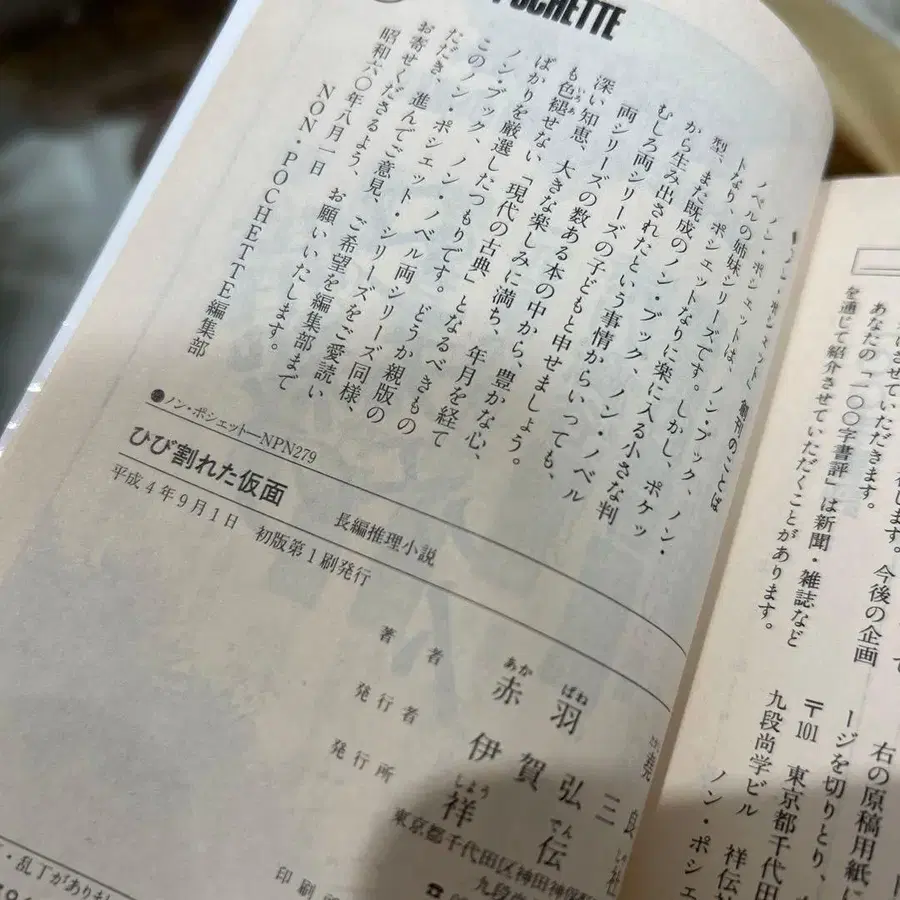 POCHETTE
ノン・ポシェットは、ノン・ブック、ノン・
ノベルの姉妹シリーズです。しかし、ポケッ
トなり、ポシェットなりに楽に入る小さな判
型、また既成のノン・ブック、ノン・ノベル
から生み出されたという事情からいっても、
むしろ両シリーズの子どもと申せましょう。
両シリーズの数ある本の中から、豊かな心、
深い知恵、大きな楽しみに満ち、年月を経て
も色褪せない「現代の古典」となるべきもの
ばかりを厳選したつもりです。どうか親版の
ノン・ブック、ノン・ノベル両シリーズ同様、
このノン・ポシェット・シリーズをご愛読い
ただき、進んでご意見、ご希望を編集部まで
お寄せくださるよう、お願いいたします。
昭和六〇年八月一日
NON・POCHETTE編集部
●ノン・ポシェット—NPN279
ひび割れた仮面
長編推理小説
平成4年9月1日 初版第1刷発行
著者 赤羽
あか ばね
発行者 伊賀弘三良
発行所 祥伝社
しよう でん
東京都千代田区神田神保
九段
印刷
・乱丁があり
いさせていただきます。
あなたの「一〇〇字書評」は新聞・雑誌など
を通じて紹介させていただくことがあります。
今後の企画
右の原稿用紙に
ージを切りとり、
〒101 東京都千代田
九段尚学ビル 祥伝
ノン・ポシェ